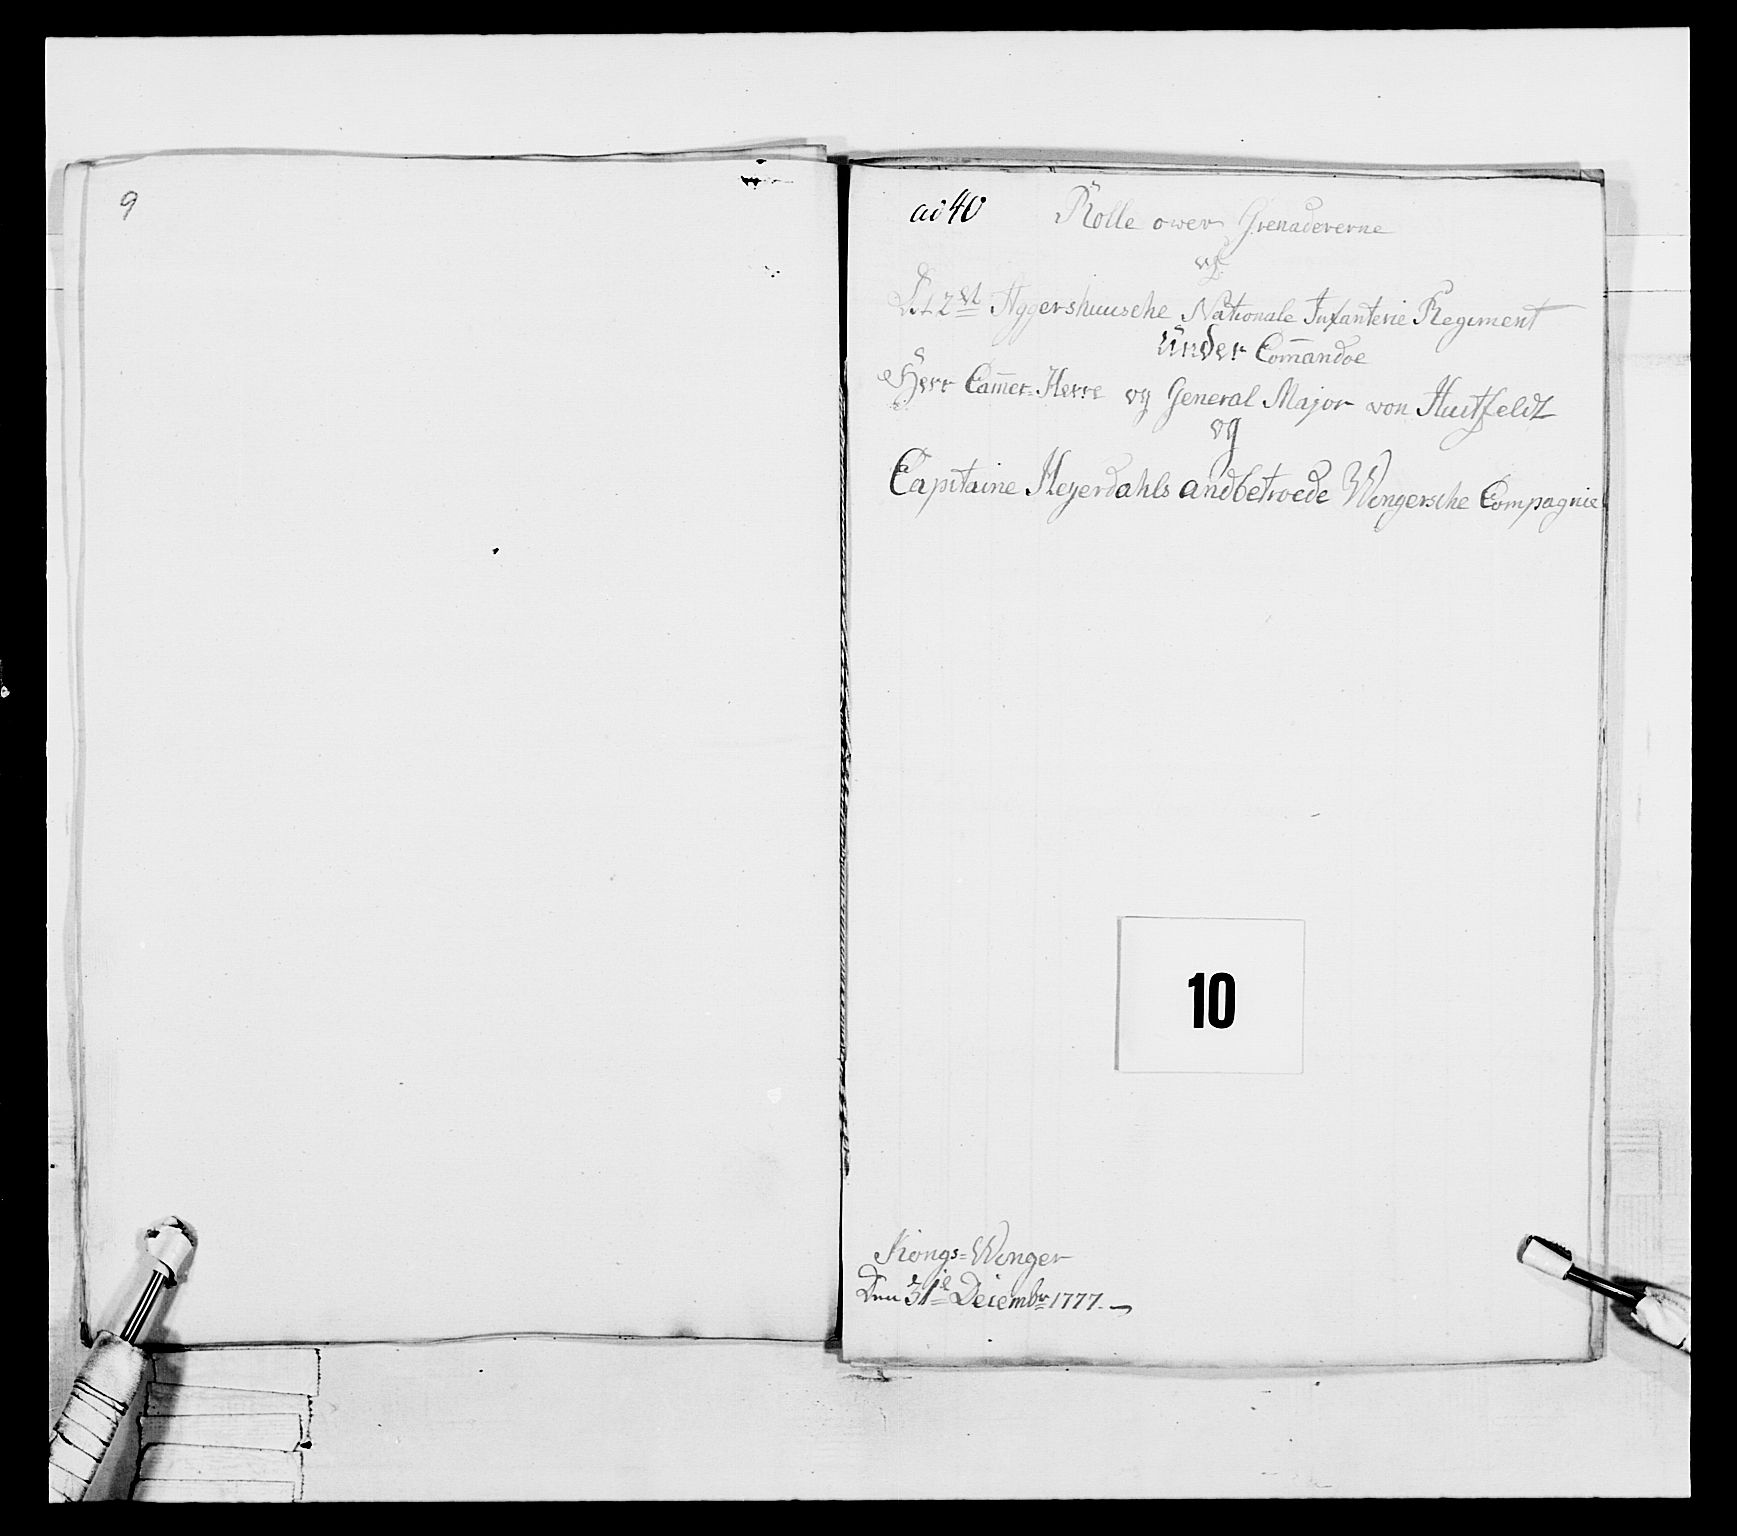 9
ad 40 Rolle over Grenadererne
af
Det 2det Aggershuusche Nationale Infanterie Regiment
Under Com̄andoe
Herr Cam̄er-Herre og General Major von Huitfeldt
og
Capitaine Heyerdahls andbetroede Wingersche Compagnie
10
Kongs=Winger
Den 31te Decembr 1777.